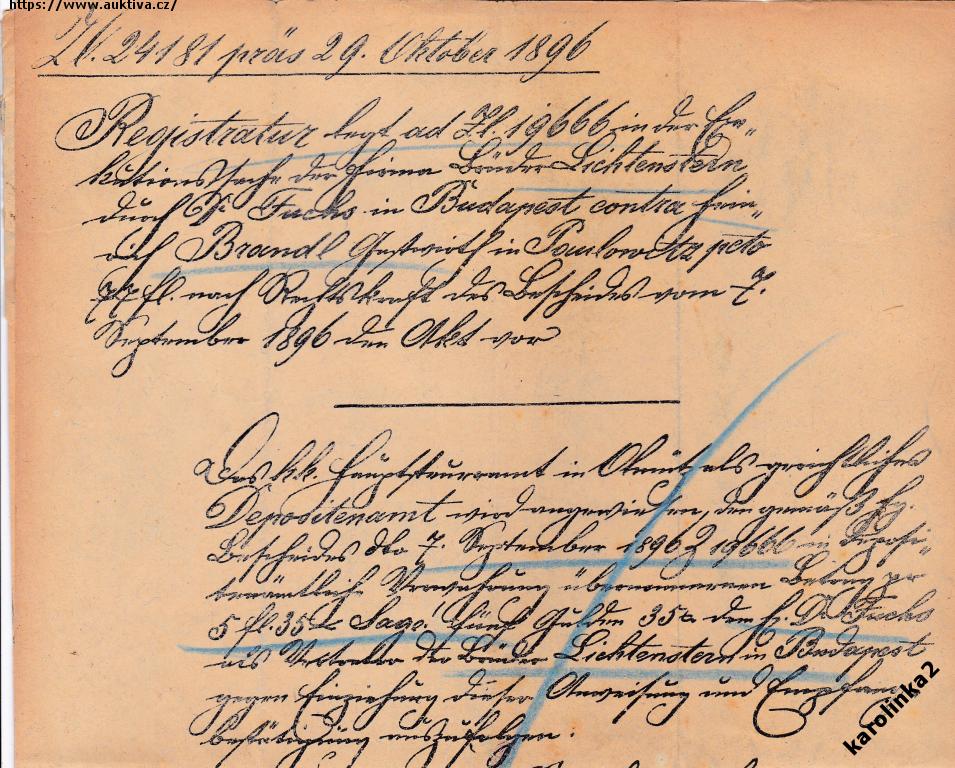 https://www.auktiva.cz/
Zl. 24181 präs 29. Oktober 1896
Registratur legt ad Zl. 19666 in der Exe„
kutionssache der Firma Brüder Lichtenstern
durch Dr Fuchs in Budapest contra Hein„
rich Brandl Gastwirth in Paulowitz peto
77 fl. nach Rechtskraft des Bescheides vom 7.
September 1896 den Akt vor
Das k.k. Hauptsteueramt in Olmütz als gerichtliches
Depositenamt wird angewiesen, den gemäß hg.
Bescheides dto 7. September 1896 Z 19666 in deposi„
tenämtliche Verwahrung übernommenen Betrag pr
5 fl. 35 Sage! fünf Gulden 35 dem H. Dr Fuchs
als Vertreter der Brüder Lichtenstern in Budapest
gegen Einziehung dieser Anweisung und Empfangs
bestätigung auszufolgen.
karolinka2